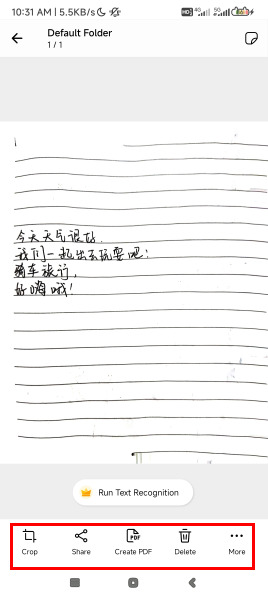 10:31 AM | 5.5KB/s
HD 4G 5G
Default Folder
1 / 1
今天天气很好.
我们一起出去玩耍吧：
骑车旅行，
好嗨哦！
Run Text Recognition
PDF
Crop Share Create PDF Delete More